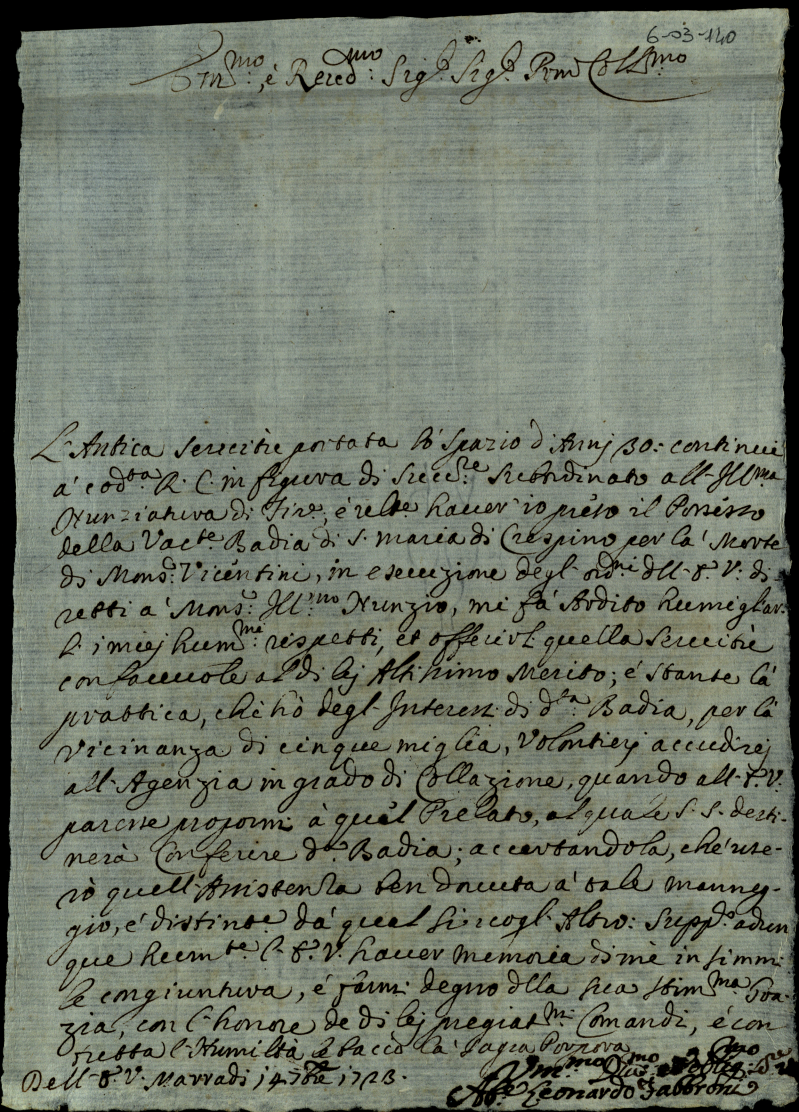 6-03-140
Em.mo, é Rev.do mo: Sig.r Sig.r Pron Coll.mo
L'Antica servitù portata lo spazio d'Anni 30: continui
á cod.ta R. C. in figura di Succ.re subordinato all'Ill.ma
Nunziatura di Fir.e, é haver io preso il Possesso
della Vac.te Badia di S. Maria di Crespino per la Morte
di Mons.r Vicentini, in esecuzione degl'ord.ni dell'E. V. di
retti a' Mons.r Ill.mo Nunzio, mi fá Ardito humigliar
l'i miej hum.mi rispetti, et offerirl' quella servitù
confaccuole al di lej Altissimo Merito; é stante lá
prattica, che hò degl'Interessi di d.ta Badia, per lá
vicinanza di cinque miglia, Volontierj accudirej
all'Agenzia in grado di Collazione, quando all'E. V.
paresse propormi à quel Prelato, al quale S. S. desti-
nerà Conferire d.a Badia; accertandola, che use-
rò quell'Assistenza ben dovuta á tale maneg-
gio, é distint.e dá qual si vogl'Altro: Supp.o adun
que hum.te l'E. V. haver memoria di mé in simmi
le congiuntura, é farmi degno della sua stim.ma Gra-
zia, con l'honore de di lej pregiat.mi Comandi, é con
tutta l'Humiltà bacio lá Sagra Porpora
Dell'E. V. Marradi 14 7bre 1723.
Um.mo Div.mo Obblig.mo Se.re
Ab.e Leonardo Fabbroni